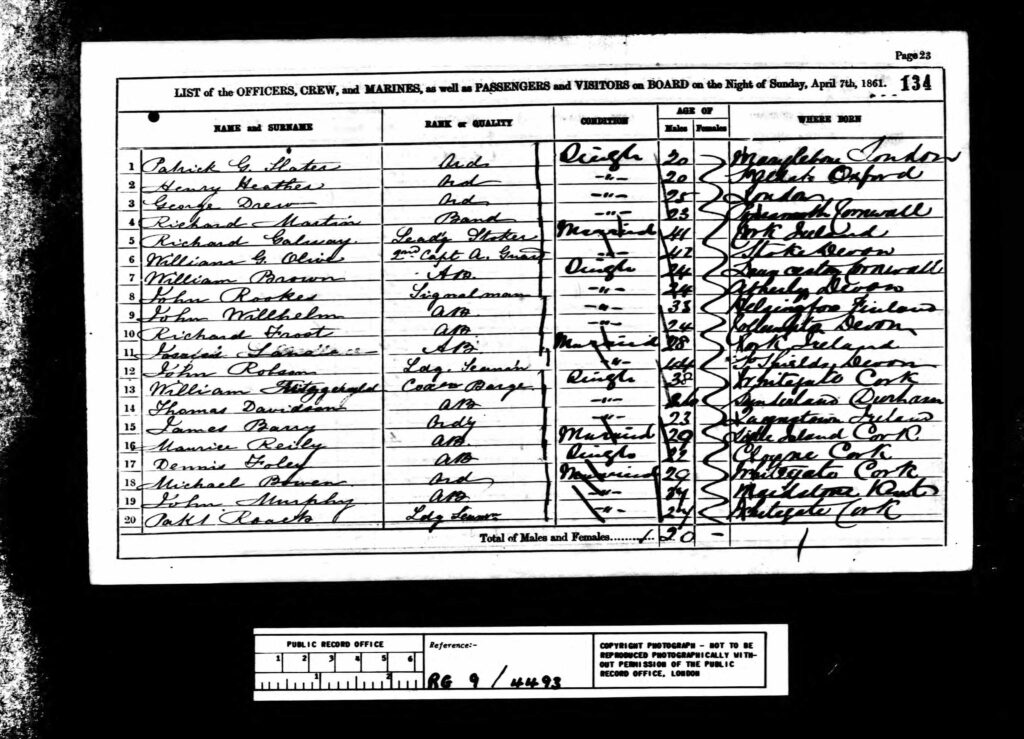 Page 23
LIST of the OFFICERS, CREW, and MARINES, as well as PASSENGERS and VISITORS on BOARD on the Night of Sunday, April 7th, 1861. 134
NAME and SURNAME RANK or QUALITY CONDITION AGE OF WHERE BORN
Males Females
1 Patrick G. Slater Ord Single 20 Marylebone London
2 Henry Heather Ord -"- 20 Oxford
3 George Drew Ord -"- 25 London
4 Richard Martin Band -"- 23 Cornwall
5 Richard Galway Leadg Stoker Married 41 Cork Ireland
6 William G. Olive 2nd Capt A. Guard -"- 42 Stoke Devon
7 William Brown AB Single 24 Launceston Cornwall
8 John Rookes Signalman -"- 24 Devon
9 John Willhelm AB -"- 33 Helsingfors Finland
10 Richard Frost AB -"- 24 Devon
11 AB Married 28 Cork Ireland
12 John Robson Ldg. Seaman -"- 44 Shields Devon
13 William Fitzgerald Coxn Barge Single 38 Whitegate Cork
14 Thomas Davidson AB -"- Sunderland Durham
15 James Barry Ordy -"- 23 Ireland
16 Maurice Reily AB Married 29 Island Cork
17 Dennis Foley AB Single 22 Cloyne Cork
18 Michael Bowen Ord Married 29 Whitegate Cork
19 John Murphy AB -"- Maidstone Kent
20 Patk Roach Ldg Seamn -"- 27 Whitegate Cork
Total of Males and Females 20 -
PUBLIC RECORD OFFICE
1 2 3 4 5 6
1 2
Reference:-
RG 9 / 4493
COPYRIGHT PHOTOGRAPH - NOT TO BE
REPRODUCED PHOTOGRAPHICALLY WITH-
OUT PERMISSION OF THE PUBLIC
RECORD OFFICE, LONDON